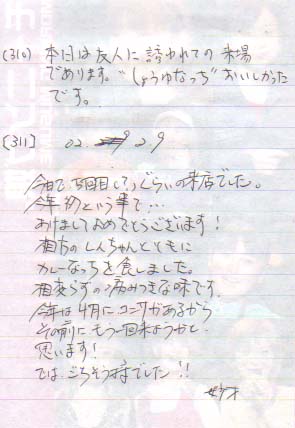 (310) 本日は友人に誘われての来場
であります。"しょうゆなっち"おいしかった
です。
(311) 02. 2.9
今日で、5回目ぐらいの来店でした。
今年初という事で…
あけましておめでとうございます!
相方のしんちゃんとともに
カレーなっちを食しました。
相変らずの病みつきな味です。
今年は4月にコンサがあるから
その前にもう一回来ようかと
思います!
では、ごちそう様でした!!